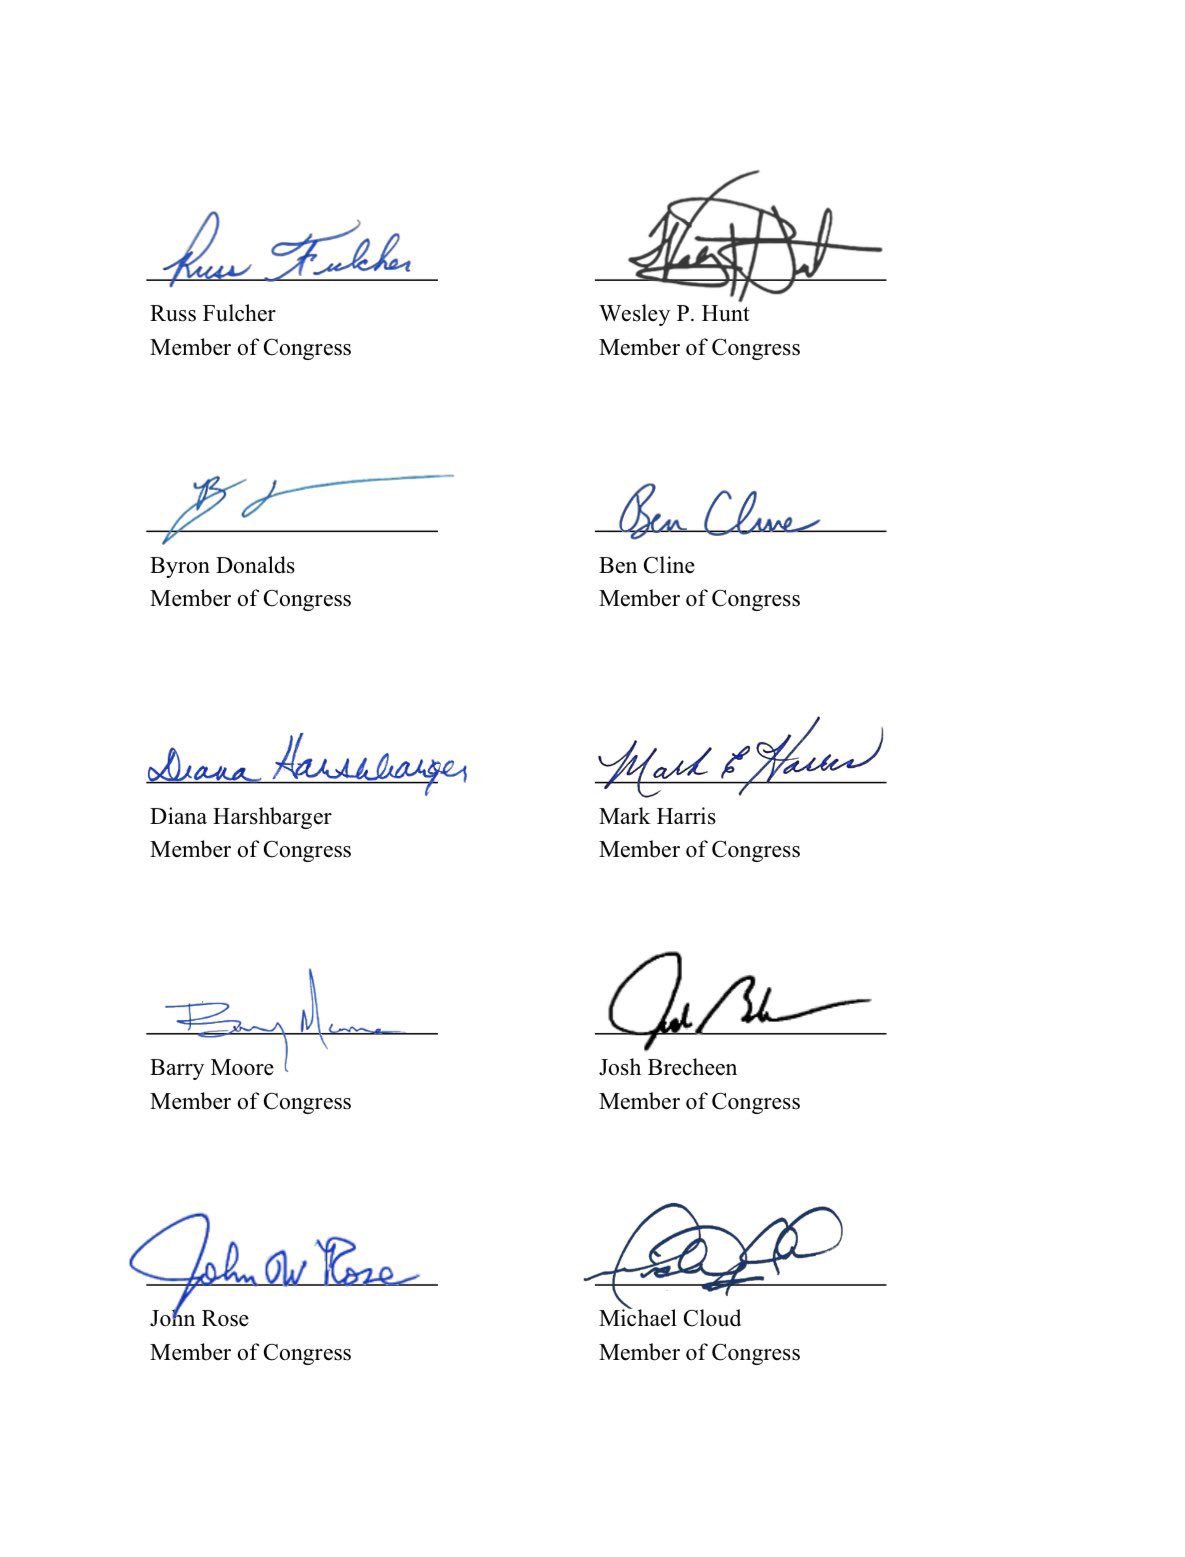 Russ Fulcher
Russ Fulcher
Member of Congress
Wesley P. Hunt
Member of Congress
Byron Donalds
Member of Congress
Ben Cline
Ben Cline
Member of Congress
Diana Harshbarger
Diana Harshbarger
Member of Congress
Mark E Harris
Mark Harris
Member of Congress
Barry Moore
Barry Moore
Member of Congress
Josh Brecheen
Member of Congress
John W Rose
John Rose
Member of Congress
Michael Cloud
Member of Congress